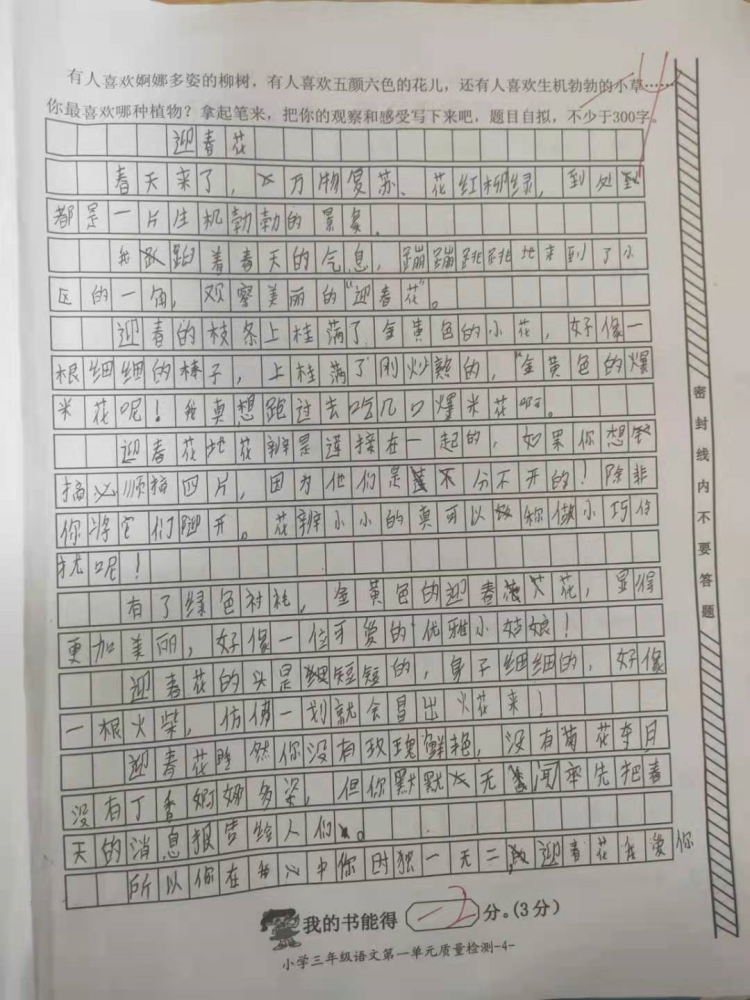 有人喜欢婀娜多姿的柳树，有人喜欢五颜六色的花儿，还有人喜欢生机勃勃的小草……
你最喜欢哪种植物？拿起笔来，把你的观察和感受写下来吧，题目自拟，不少于300字。
迎春花
春天来了，万物复苏、花红柳绿，到处
都是一片生机勃勃的景象。
我跟着春天的气息，蹦蹦跳跳地来到了小
区的一角，观察美丽的“迎春花”。
迎春的枝条上挂满了金黄色的小花，好像一
根细细的棒子，上挂满了刚炒熟的，“金黄色的爆
米花呢！我真想跑过去吃几口爆米花啊。
迎春花地花辨是连接在一起的，如果你想
摘 顺摘四片，因为他们是 不分不开的！除非
你将它们 开。花辨小小的真可以 称做小巧
呢！
有了绿色衬托，金黄色的迎春花，显得
更加美丽，好像一位可爱的优雅小姑娘！
迎春花的头是短短的，身子细细的，好像
一根火柴，仿佛一划就会冒出火花来！
迎春花虽然你没有玫瑰鲜艳，没有菊花夺目
没有丁香婀娜多姿，但你默默无闻率先把春
天的消息报告给人们。
所以你在我心中你时独一无二，迎春花我爱你
我的书能得 分。(3分)
小学三年级语文第一单元质量检测-4-
密封线内不要答题